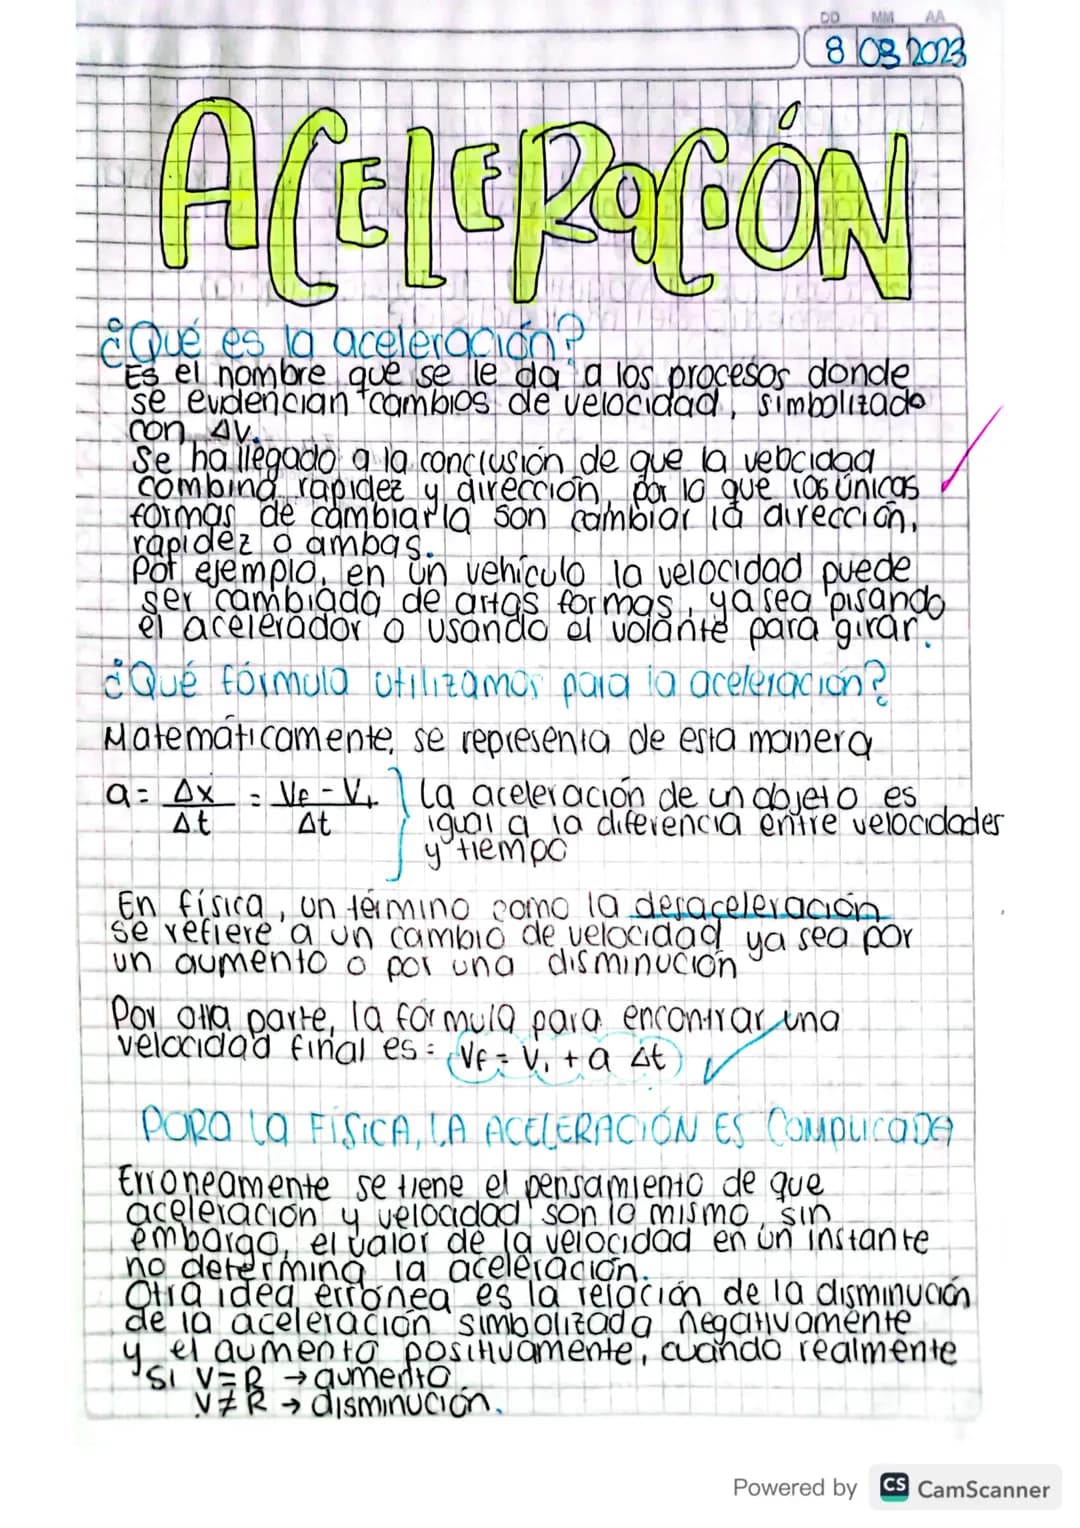 DD MM AA
8 03 2023
ACELERACIÓN
¿Qué es la aceleración?
Es el nombre que se le da a los procesos donde
se evidencian cambios de velocidad, simbolizado
con ΔV.
Se ha llegado a la conclusión de que la velocidad
combina rapidez y dirección, por lo que las únicas
formas de cambiarla son cambiar la dirección,
rapidez o ambas.
Por ejemplo, en un vehículo la velocidad puede
ser cambiada de artas formas, ya sea pisando
el acelerador o usando el volante para girar.
¿Qué fórmula utilizamos para la aceleración?
Matemáticamente, se representa de esta manera
a = Δx / Δt = Vf - Vi / Δt } La aceleración de un objeto es
igual a la diferencia entre velocidades
y tiempo
En física, un término como la desaceleración
se refiere a un cambio de velocidad ya sea por
un aumento o por una disminución
Por otra parte, la fórmula para encontrar una
velocidad final es: Vf = Vi + a Δt
PARA LA FÍSICA, LA ACELERACIÓN ES COMPLICADA
Erroneamente se tiene el pensamiento de que
aceleración y velocidad son lo mismo, sin
embargo, el valor de la velocidad en un instante
no determina la aceleración.
Otra idea errónea es la relación de la disminución
de la aceleración simbolizada negativamente
y el aumento positivamente, cuando realmente
si V=R → aumento
V≠R → disminución.
Powered by CS CamScanner